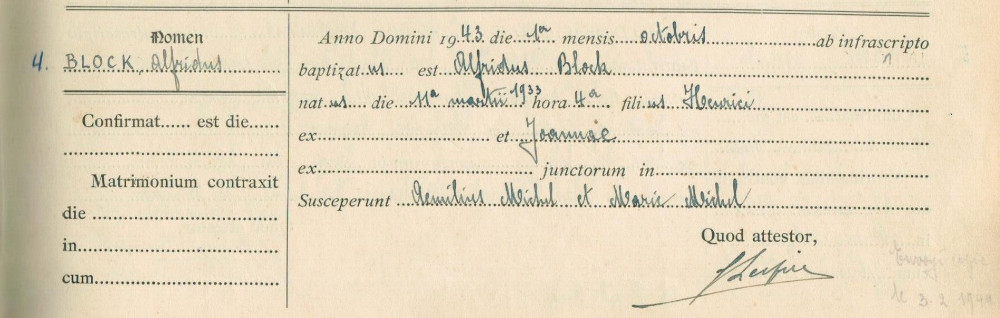 Nomen
4. BLOCK, Alfridus
Confirmat...... est die......
Matrimonium contraxit
die
in
cum
Anno Domini 1943 die 1a mensis octobris ab infrascripto
baptizatus est Alfridus Block
natus die 11a martii 1933 hora 4a filius Henrici
ex et Joannae
ex junctorum in
Susceperunt Aemilius Michel et Marie Michel
Quod attestor,
le 3.2.194